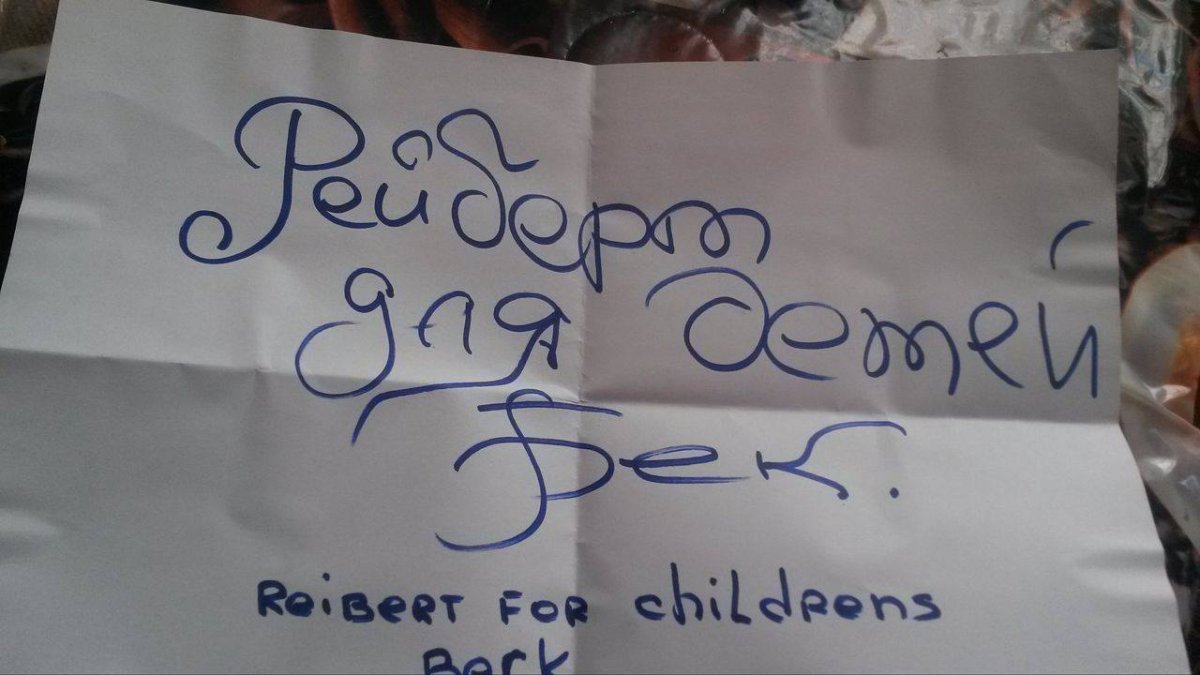 Рейберт
для детей
Бек.
ReiBeRT FOR chiLdRens
Berk